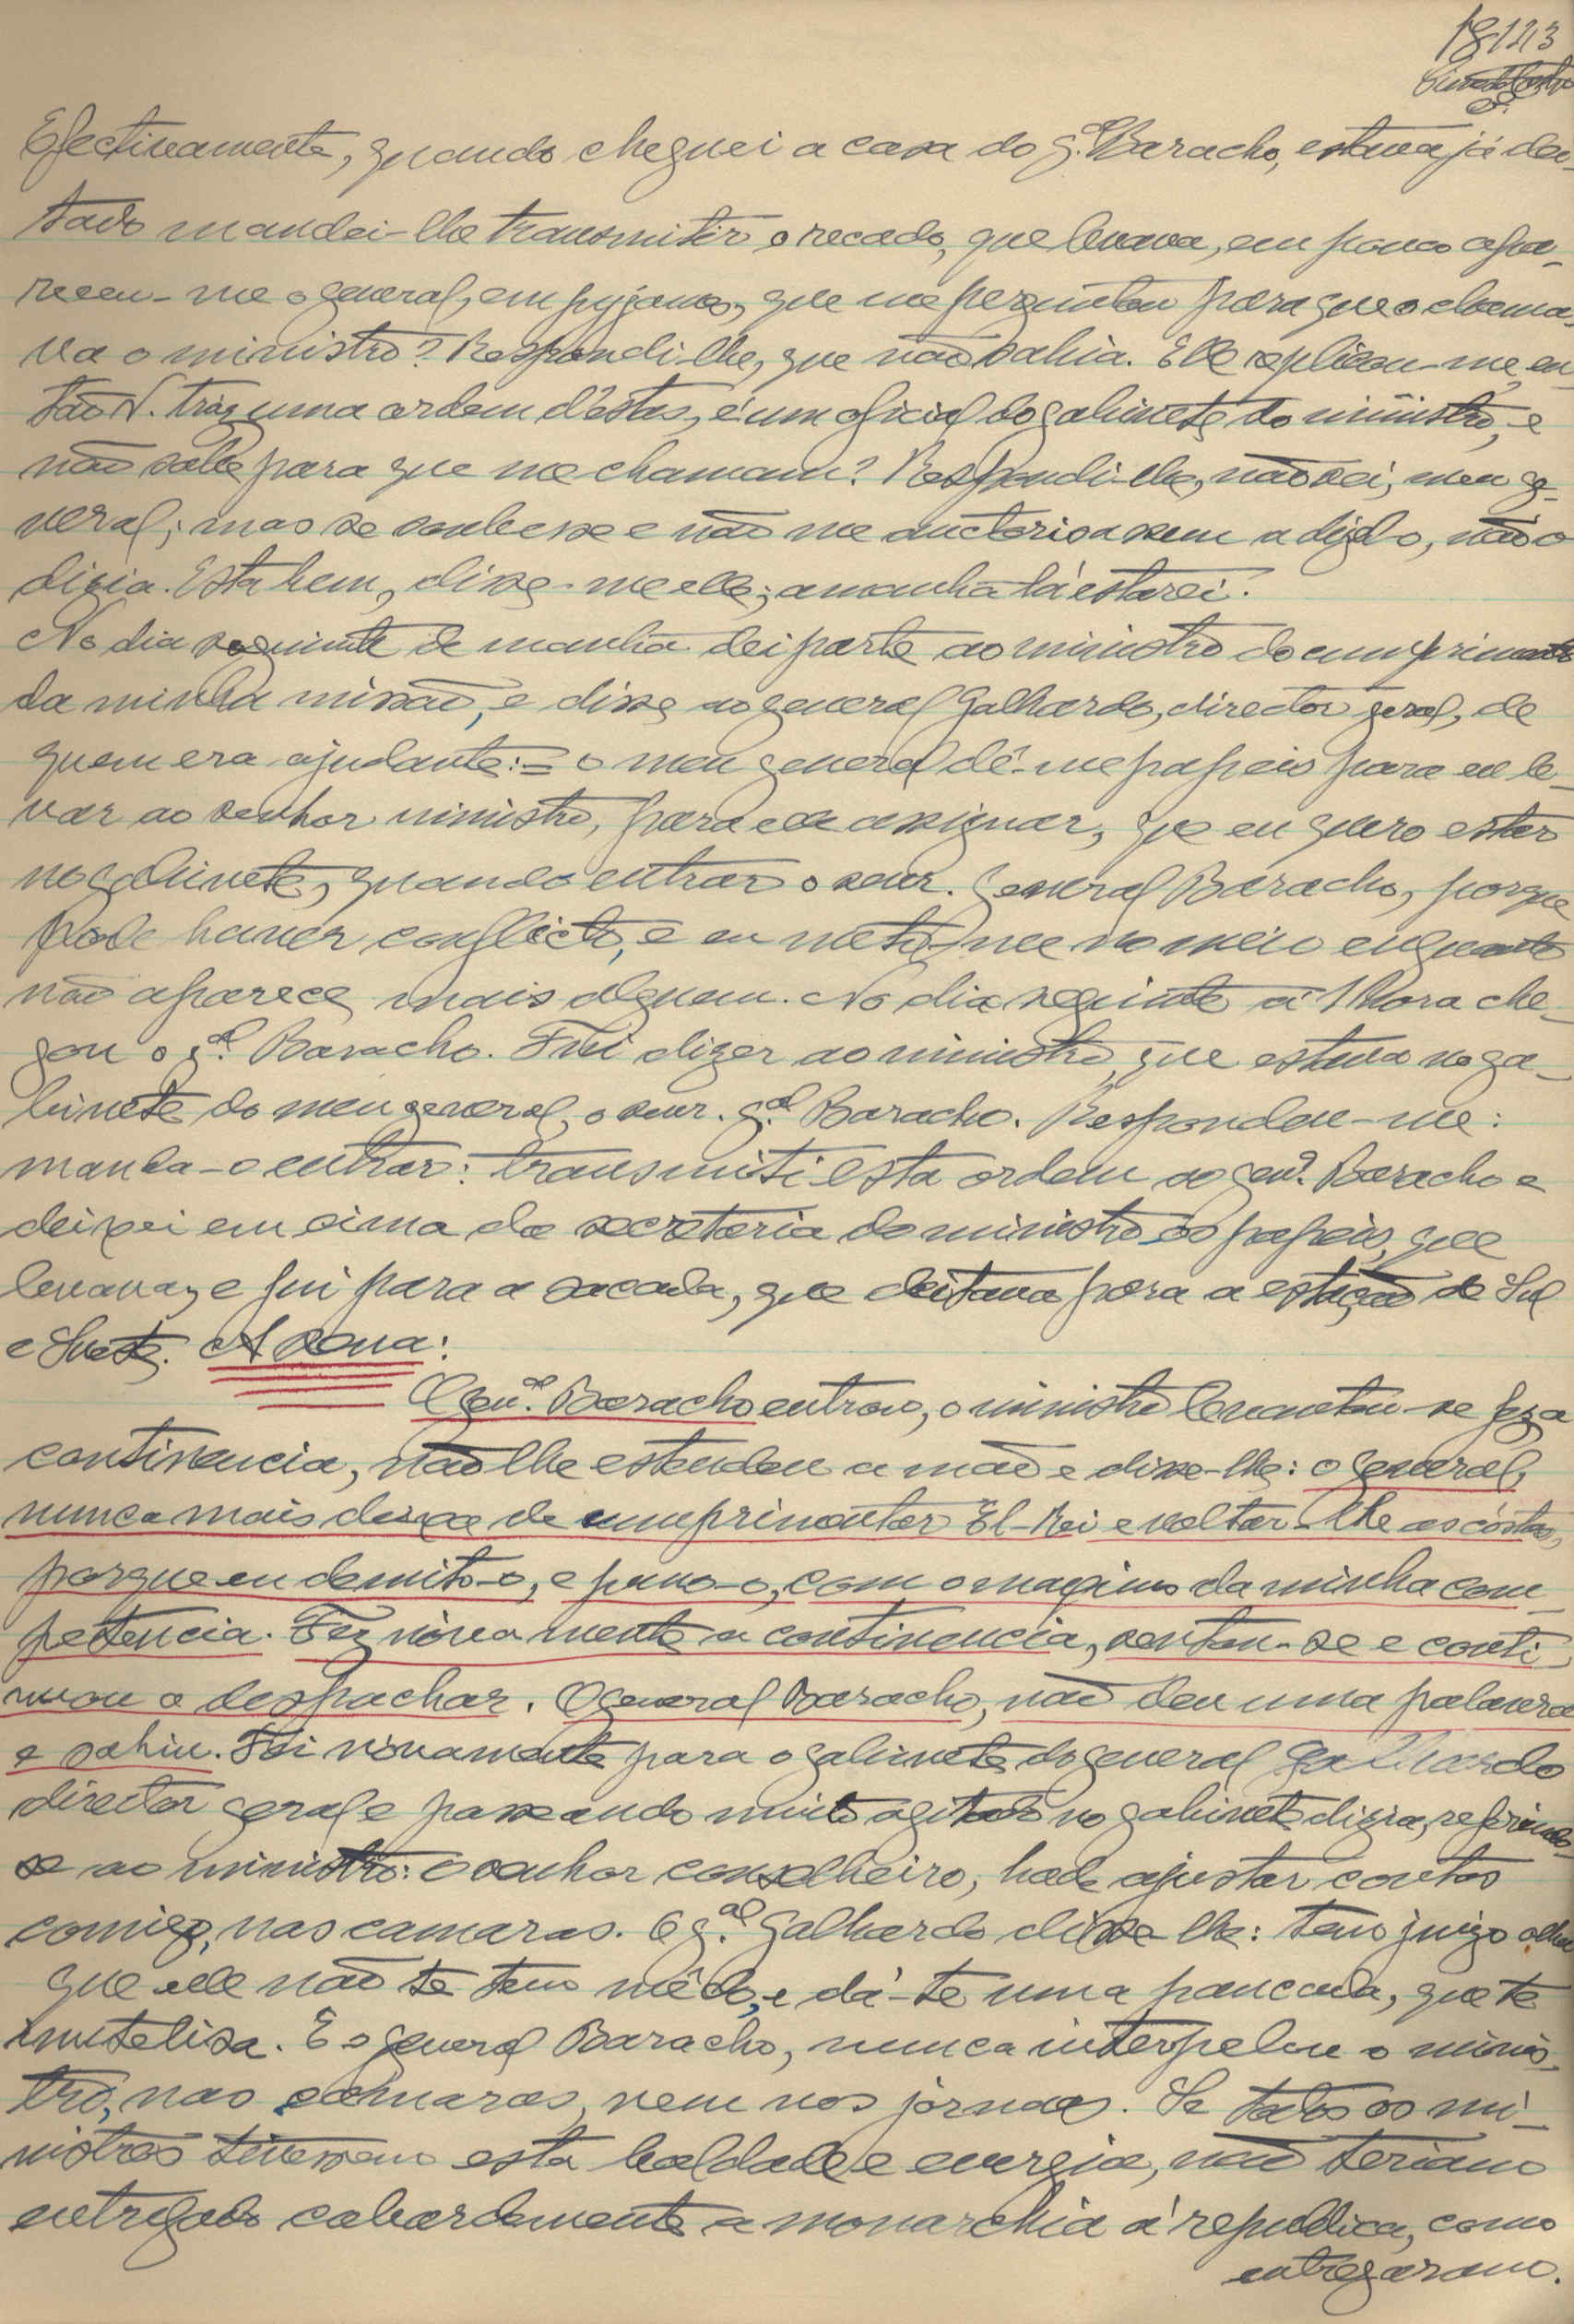 18123
Efectivamente, quando cheguei a casa do g.al Baracho, estava já dei-
tado mandei-lhe transmitir o recado, que levava, em pouco apa-
receu-me o general, em pyjama, que me perguntou para que o chama-
va o ministro? Respondi-lhe, que não sabia. Elle replicou-me, en-
tão V. traz uma ordem d'estas, é um oficial do gabinete do ministro, e
não sabe para que me chamam? Respondi-lhe, não sei, meu ge-
neral; mas se soubesse e não me auctorisassem a dizel-o, não o
dizia. Está bem, disse-me elle; amanhã lá estarei.
No dia seguinte de manhã dei parte ao ministro do cumprimento
da minha missão, e disse ao general Galhardo, director geral, de
quem era ajudante: = o meu general dê-me papeis para eu le-
var ao senhor ministro, para elle assignar, que eu quero estar
no gabinete, quando entrar o senr. general Baracho, porque
póde haver conflicto, e eu meto-me no meio enquanto
não aparece mais alguem. No dia seguinte á 1 hora che-
gou o g.al Baracho. Fui dizer ao ministro, que estava no ga-
binete do meu general, o senr. g.al Baracho. Respondeu-me:
manda-o entrar: transmiti esta ordem ao gen.al Baracho e
deixei em cima da secretaria do ministro os papeis, que
levava, e fui para a sacada, que deitava para a estação do Sul
e Sueste. A scena:
O gen.al Baracho entrou, o ministro levantou-se fez a
continencia, não lhe estendeu a mão e disse-lhe: o general,
nunca mais deixa de cumprimentar El-Rei e voltar-lhe as cóstas,
porque eu demito-o, e puno-o, com o maximo da minha com-
petencia. Fez nóvamente a continencia, sentou-se e conti-
nuou a despachar. O general Baracho, não deu uma palavra
e sahiu. Foi novamente para o gabinete do general Galhardo
director geral e passeando muito agitado no gabinete dizia, referindo-
se ao ministro: o senhor conselheiro, hade ajustar contas
comigo, nas camaras. O g.al Galhardo disse-lhe: tem juizo olha
que elle não te tem mêdo, e dá-te uma pancada, que te
inutelisa. E o general Baracho, nunca interpelou o minis-
tro, nas camaras, nem nos jornaes. Se todos os mi-
nistros tivessem esta lealdade e energia, não teriam
entregado cobardemente a monarchia á republica, como
entregaram.